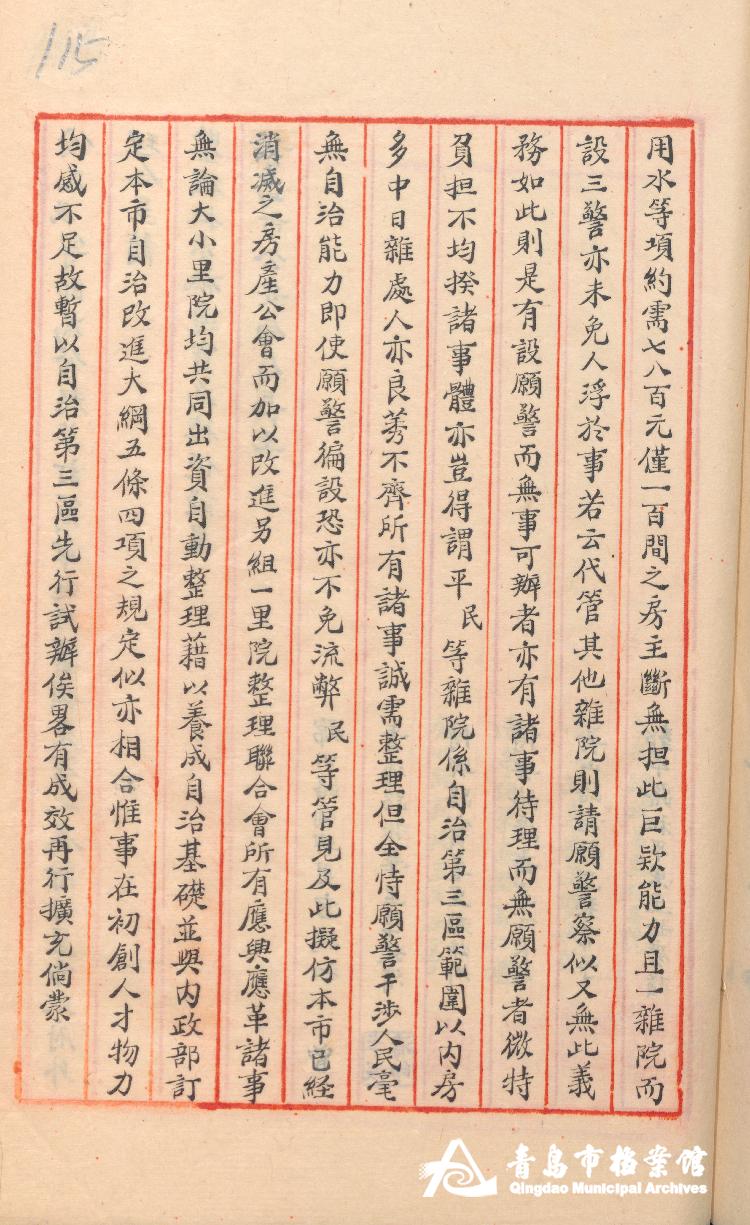 115
用水等項約需七八百元僅一百間之房主斷無担此巨欵能力且一雜院而
設三警亦未免人浮於事若云代管其他雜院則請願警察似又無此義
務如此則是有設願警而無事可辦者亦有諸事待理而無願警者微特
負担不均揆諸事體亦豈得謂平民等雜院係自治第三區範圍以內房
多中日雜處人亦良莠不齊所有諸事誠需整理但全恃願警干涉人民毫
無自治能力即使願警徧設恐亦不免流弊民等管見及此擬仿本市已經
消滅之房產公會而加以改進另組一里院整理聯合會所有應興應革諸事
無論大小里院均共同出資自動整理藉以養成自治基礎並與內政部訂
定本市自治改進大綱五條四項之規定似亦相合惟事在初創人才物力
均感不足故暫以自治第三區先行試辦俟畧有成效再行擴充倘蒙
青岛市档案馆
Qingdao Municipal Archives